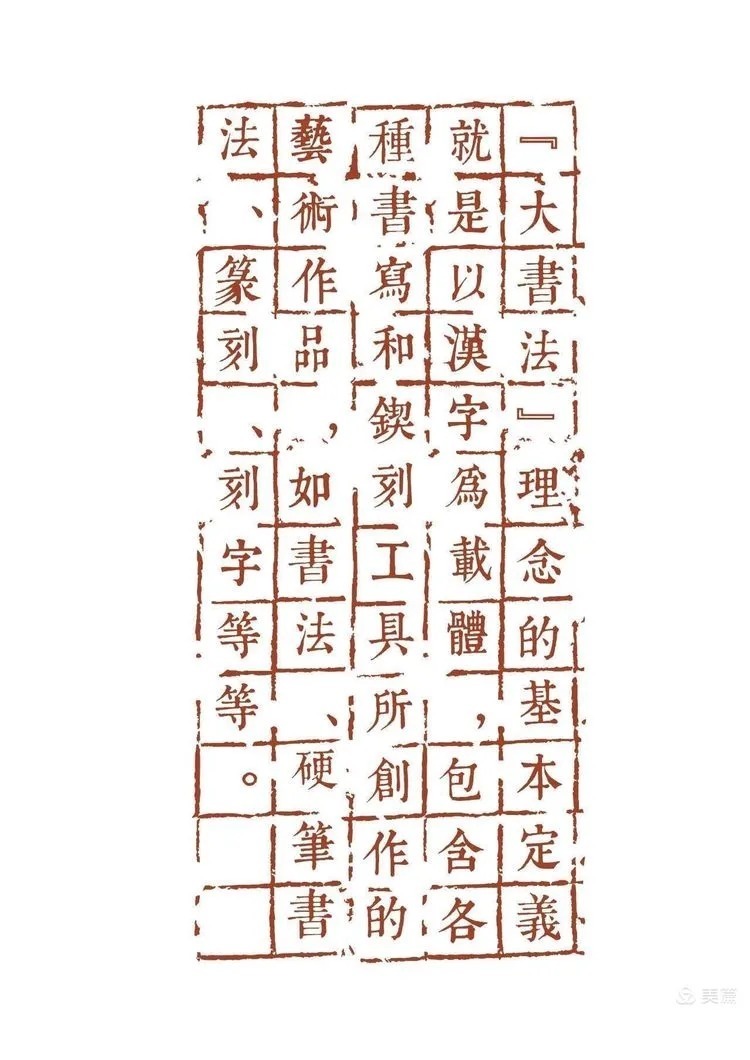 『大書法』理念的基本定義
就是以漢字爲載體，包含各
種書寫和鍥刻工具所創作的
藝術作品，如書法、硬筆書
法、篆刻、刻字等等。
美篇